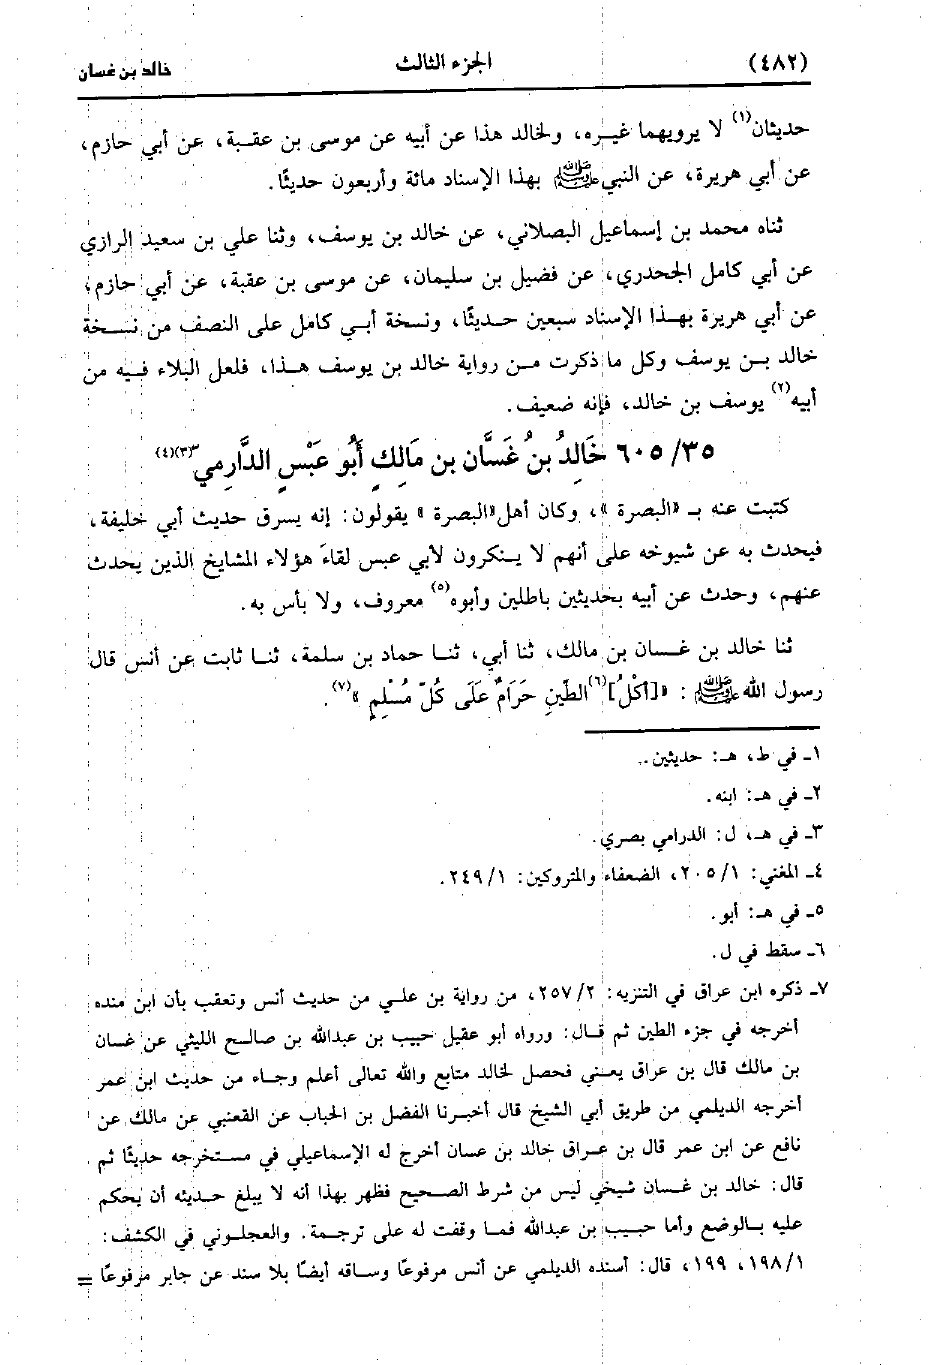 (٤٨٢) الجزء الثالث خالد بن غسان
حديثان(١) لا يرويهما غيره، ولخالد هذا عن أبيه عن موسى بن عقبة، عن أبي حازم،
عن أبي هريرة، عن النبي ﷺ بهذا الإسناد مائة وأربعون حديثًا.
ثناه محمد بن إسماعيل البصلاني، عن خالد بن يوسف، وثنا علي بن سعيد الرازي
عن أبي كامل الجحدري، عن فضيل بن سليمان، عن موسى بن عقبة، عن أبي حازم،
عن أبي هريرة بهذا الإسناد سبعين حديثًا، ونسخة أبي كامل على النصف من نسخة
خالد بن يوسف وكل ما ذكرت من رواية خالد بن يوسف هذا، فلعل البلاء فيه من
أبيه(٢) يوسف بن خالد، فإنه ضعيف.
٣٥/ ٦٠٥ خَالِدُ بنُ غَسَّان بن مَالِكٍ أَبُو عَبْسٍ الدَّارِمي(٣)(٤)
كتبت عنه بـ «البصرة »، وكان أهل«البصرة » يقولون: إنه يسرق حديث أبي خليفة،
فيحدث به عن شيوخه على أنهم لا ينكرون لأبي عبس لقاءَ هؤلاء المشايخ الذين يحدث
عنهم، وحدث عن أبيه بحديثين باطلين وأبوه(٥) معروف، ولا بأس به.
ثنا خالد بن غسان بن مالك، ثنا أبي، ثنا حماد بن سلمة، ثنا ثابت عن أنس قال
رسول الله ﷺ : «[أكْلُ](٦) الطِّينِ حَرَامٌ عَلَى كُلِّ مُسْلِمٍ »(٧).
١ـ في ط، هـ: حديثين.
٢ـ في هـ: ابنه.
٣ـ في هـ، ل: الدرامي بصري.
٤ـ المغني: ٢٠٥/١، الضعفاء والمتروكين: ٢٤٩/١.
٥ـ في هـ: أبو.
٦ـ سقط في ل.
٧ـ ذكره ابن عراق في التنزيه: ٢٥٧/٢، من رواية بن علي من حديث أنس وتعقب بأن ابن منده
أخرجه في جزء الطين ثم قال: ورواه أبو عقيل حبيب بن عبدالله بن صالح الليثي عن غسان
بن مالك قال بن عراق يعني فحصل لخالد متابع والله تعالى أعلم وجاء من حديث ابن عمر
أخرجه الديلمي من طريق أبي الشيخ قال أخبرنا الفضل بن الحباب عن القعنبي عن مالك عن
نافع عن ابن عمر قال بن عراق خالد بن عسان أخرج له الإسماعيلي في مستخرجه حديثًا ثم
قال: خالد بن غسان شيخي ليس من شرط الصحيح فظهر بهذا أنه لا يبلغ حديثه أن يحكم
عليه بالوضع وأما حبيب بن عبدالله فما وقفت له على ترجمة. والعجلوني في الكشف:
١٩٨/١، ١٩٩، قال: أسنده الديلمي عن أنس مرفوعًا وساقه أيضًا بلا سند عن جابر مرفوعًا =